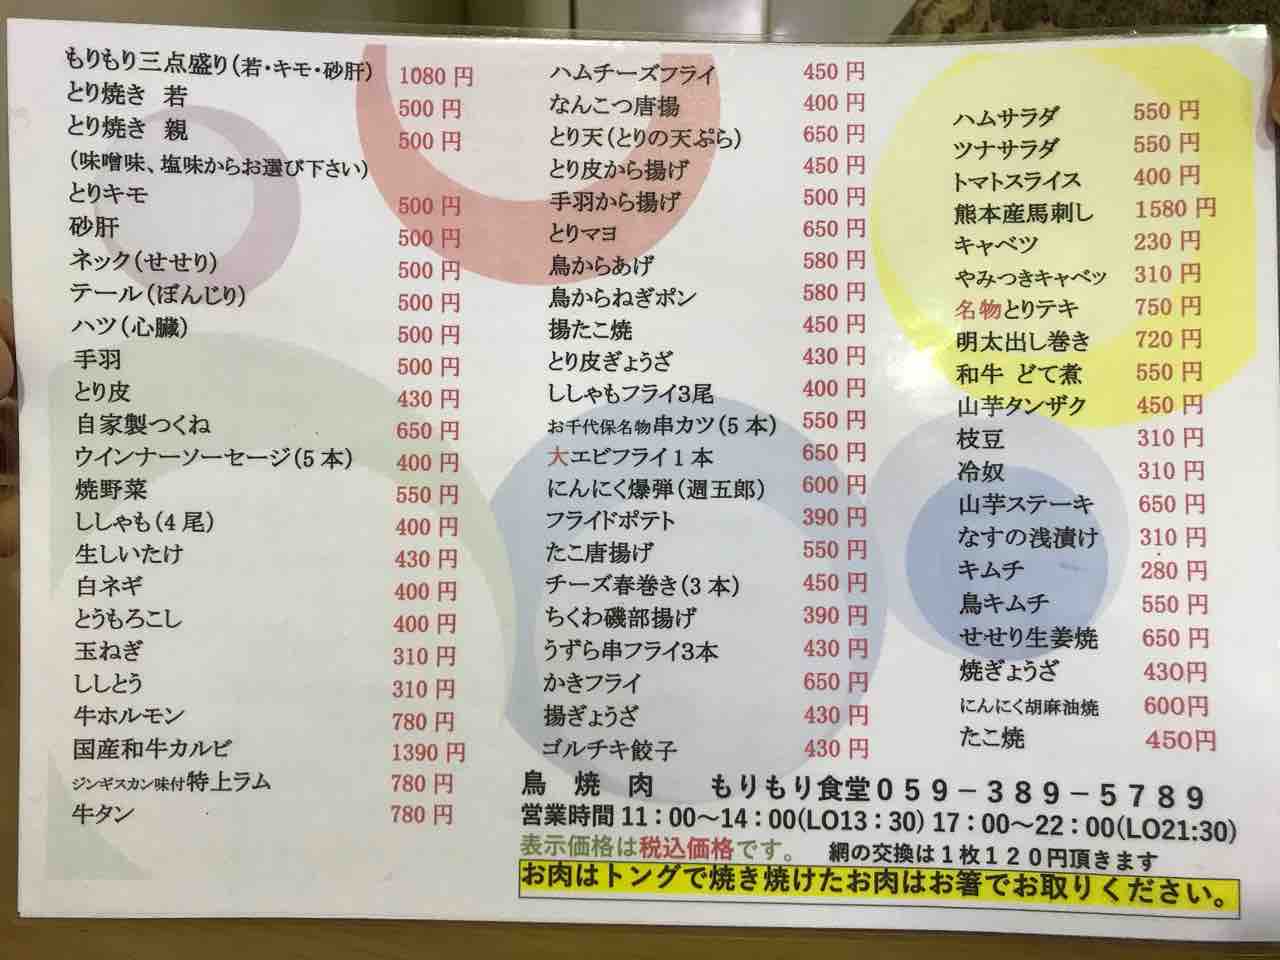 もりもり三点盛り(若・キモ・砂肝) 1080円
とり焼き 若 500円
とり焼き 親 500円
(味噌味、塩味からお選び下さい)
とりキモ 500円
砂肝 500円
ネック(せせり) 500円
テール(ぼんじり) 500円
ハツ(心臓) 500円
手羽 500円
とり皮 430円
自家製つくね 650円
ウインナーソーセージ(5本) 400円
焼野菜 550円
ししゃも(4尾) 400円
生しいたけ 430円
白ネギ 400円
とうもろこし 400円
玉ねぎ 310円
ししとう 310円
牛ホルモン 780円
国産和牛カルビ 1390円
ジンギスカン味付特上ラム 780円
牛タン 780円
ハムチーズフライ 450円
なんこつ唐揚 400円
とり天(とりの天ぷら) 650円
とり皮から揚げ 450円
手羽から揚げ 500円
とりマヨ 650円
鳥からあげ 580円
鳥からねぎポン 580円
揚たこ焼 450円
とり皮ぎょうざ 430円
ししゃもフライ3尾 400円
お千代保名物串カツ(5本) 550円
大エビフライ1本 650円
にんにく爆弾(週五郎) 600円
フライドポテト 390円
たこ唐揚げ 550円
チーズ春巻き(3本) 450円
ちくわ磯部揚げ 390円
うずら串フライ3本 430円
かきフライ 650円
揚ぎょうざ 430円
ゴルチキ餃子 430円
ハムサラダ 550円
ツナサラダ 550円
トマトスライス 400円
熊本産馬刺し 1580円
キャベツ 230円
やみつきキャベツ 310円
名物とりテキ 750円
明太出し巻き 720円
和牛 どて煮 550円
山芋タンザク 450円
枝豆 310円
冷奴 310円
山芋ステーキ 650円
なすの浅漬け 310円
キムチ 280円
鳥キムチ 550円
せせり生姜焼 650円
焼ぎょうざ 430円
にんにく胡麻油焼 600円
たこ焼 450円
鳥 焼 肉 もりもり食堂059－389－5789
営業時間11：00～14：00(LO13：30) 17：00～22：00(LO21:30)
表示価格は税込価格です。 網の交換は1枚120円頂きます
お肉はトングで焼き焼けたお肉はお箸でお取りください。